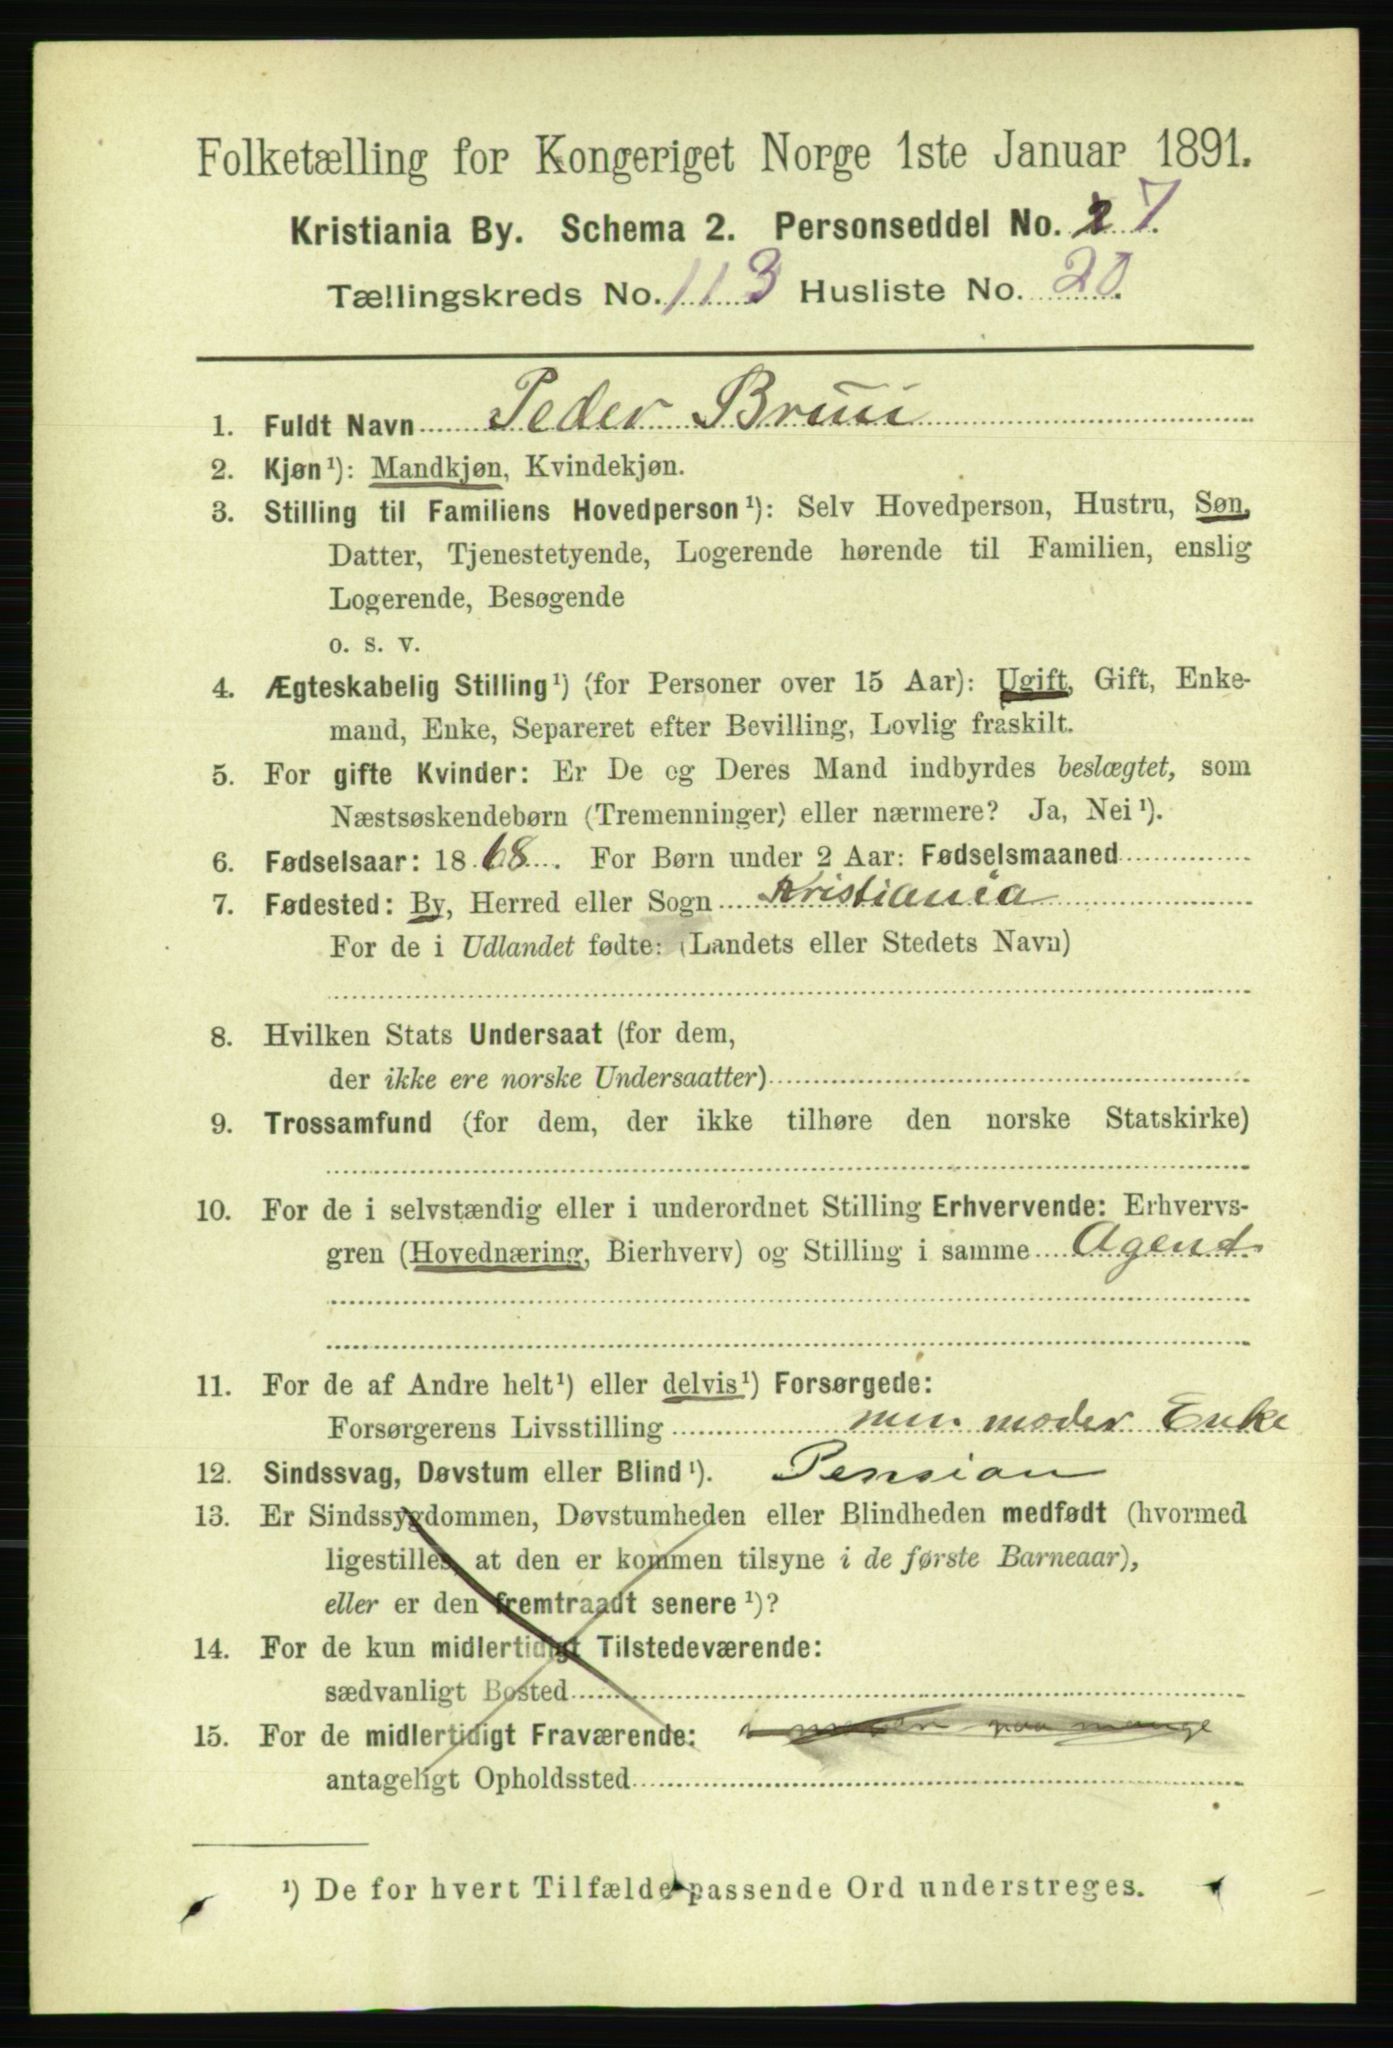 Folketælling for Kongeriget Norge 1ste Januar 1891.
Kristiania By. Schema 2. Personseddel No. 7.
Tællingskreds No. 113 Husliste No. 20.
1. Fuldt Navn Peder Bruu
2. Kjøn ¹): Mandkjøn, Kvindekjøn.
3. Stilling til Familiens Hovedperson ¹): Selv Hovedperson, Hustru, Søn,
Datter, Tjenestetyende, Logerende hørende til Familien, enslig
Logerende, Besøgende
o. s. v.
4. Ægteskabelig Stilling ¹) (for Personer over 15 Aar): Ugift, Gift, Enke-
mand, Enke, Separeret efter Bevilling, Lovlig fraskilt.
5. For gifte Kvinder: Er De og Deres Mand indbyrdes beslægtet, som
Næstsøskendebørn (Tremenninger) eller nærmere? Ja, Nei ¹).
6. Fødselsaar: 1868. For Børn under 2 Aar: Fødselsmaaned
7. Fødested: By, Herred eller Sogn Kristiania
For de i Udlandet fødte: (Landets eller Stedets Navn)
8. Hvilken Stats Undersaat (for dem,
der ikke ere norske Undersaatter)
9. Trossamfund (for dem, der ikke tilhøre den norske Statskirke)
10. For de i selvstændig eller i underordnet Stilling Erhvervende: Erhvervs-
gren (Hovednæring, Bierhverv) og Stilling i samme Agent
11. For de af Andre helt ¹) eller delvis ¹) Forsørgede:
Forsørgerens Livsstilling min moder Enke
12. Sindssvag, Døvstum eller Blind ¹). Pension
13. Er Sindssygdommen, Døvstumheden eller Blindheden medfødt (hvormed
ligestilles, at den er kommen tilsyne i de første Barneaar),
eller er den fremtraadt senere ¹)?
14. For de kun midlertidigt Tilstedeværende:
sædvanligt Bosted
15. For de midlertidigt Fraværende: paa mange
antageligt Opholdssted
¹) De for hvert Tilfælde passende Ord understreges.